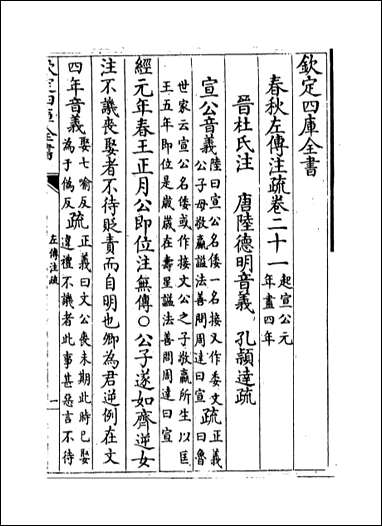 欽定四庫全書
春秋左傳注疏卷二十一起宣公元
年盡四年
晉杜氏注 唐陸德明音義 孔穎達疏
宣公音義陸曰宣公名倭一名接又作委文
公子母敬嬴諡法善問周達曰宣疏正義
曰魯
世家云宣公名倭或作接文公之子敬嬴所生以匡
王五年即位是歲歲在壽星諡法善問周達曰宣
經元年春王正月公即位注無傳○公子遂如齊逆女
注不譏喪娶者不待貶責而自明也卿為君逆例在文
四年音義娶七喻反
為于偽反疏正義曰文公喪未期此時已娶
違禮不譏者此事甚惡言不待
欽定四庫全書
左傳注疏
一